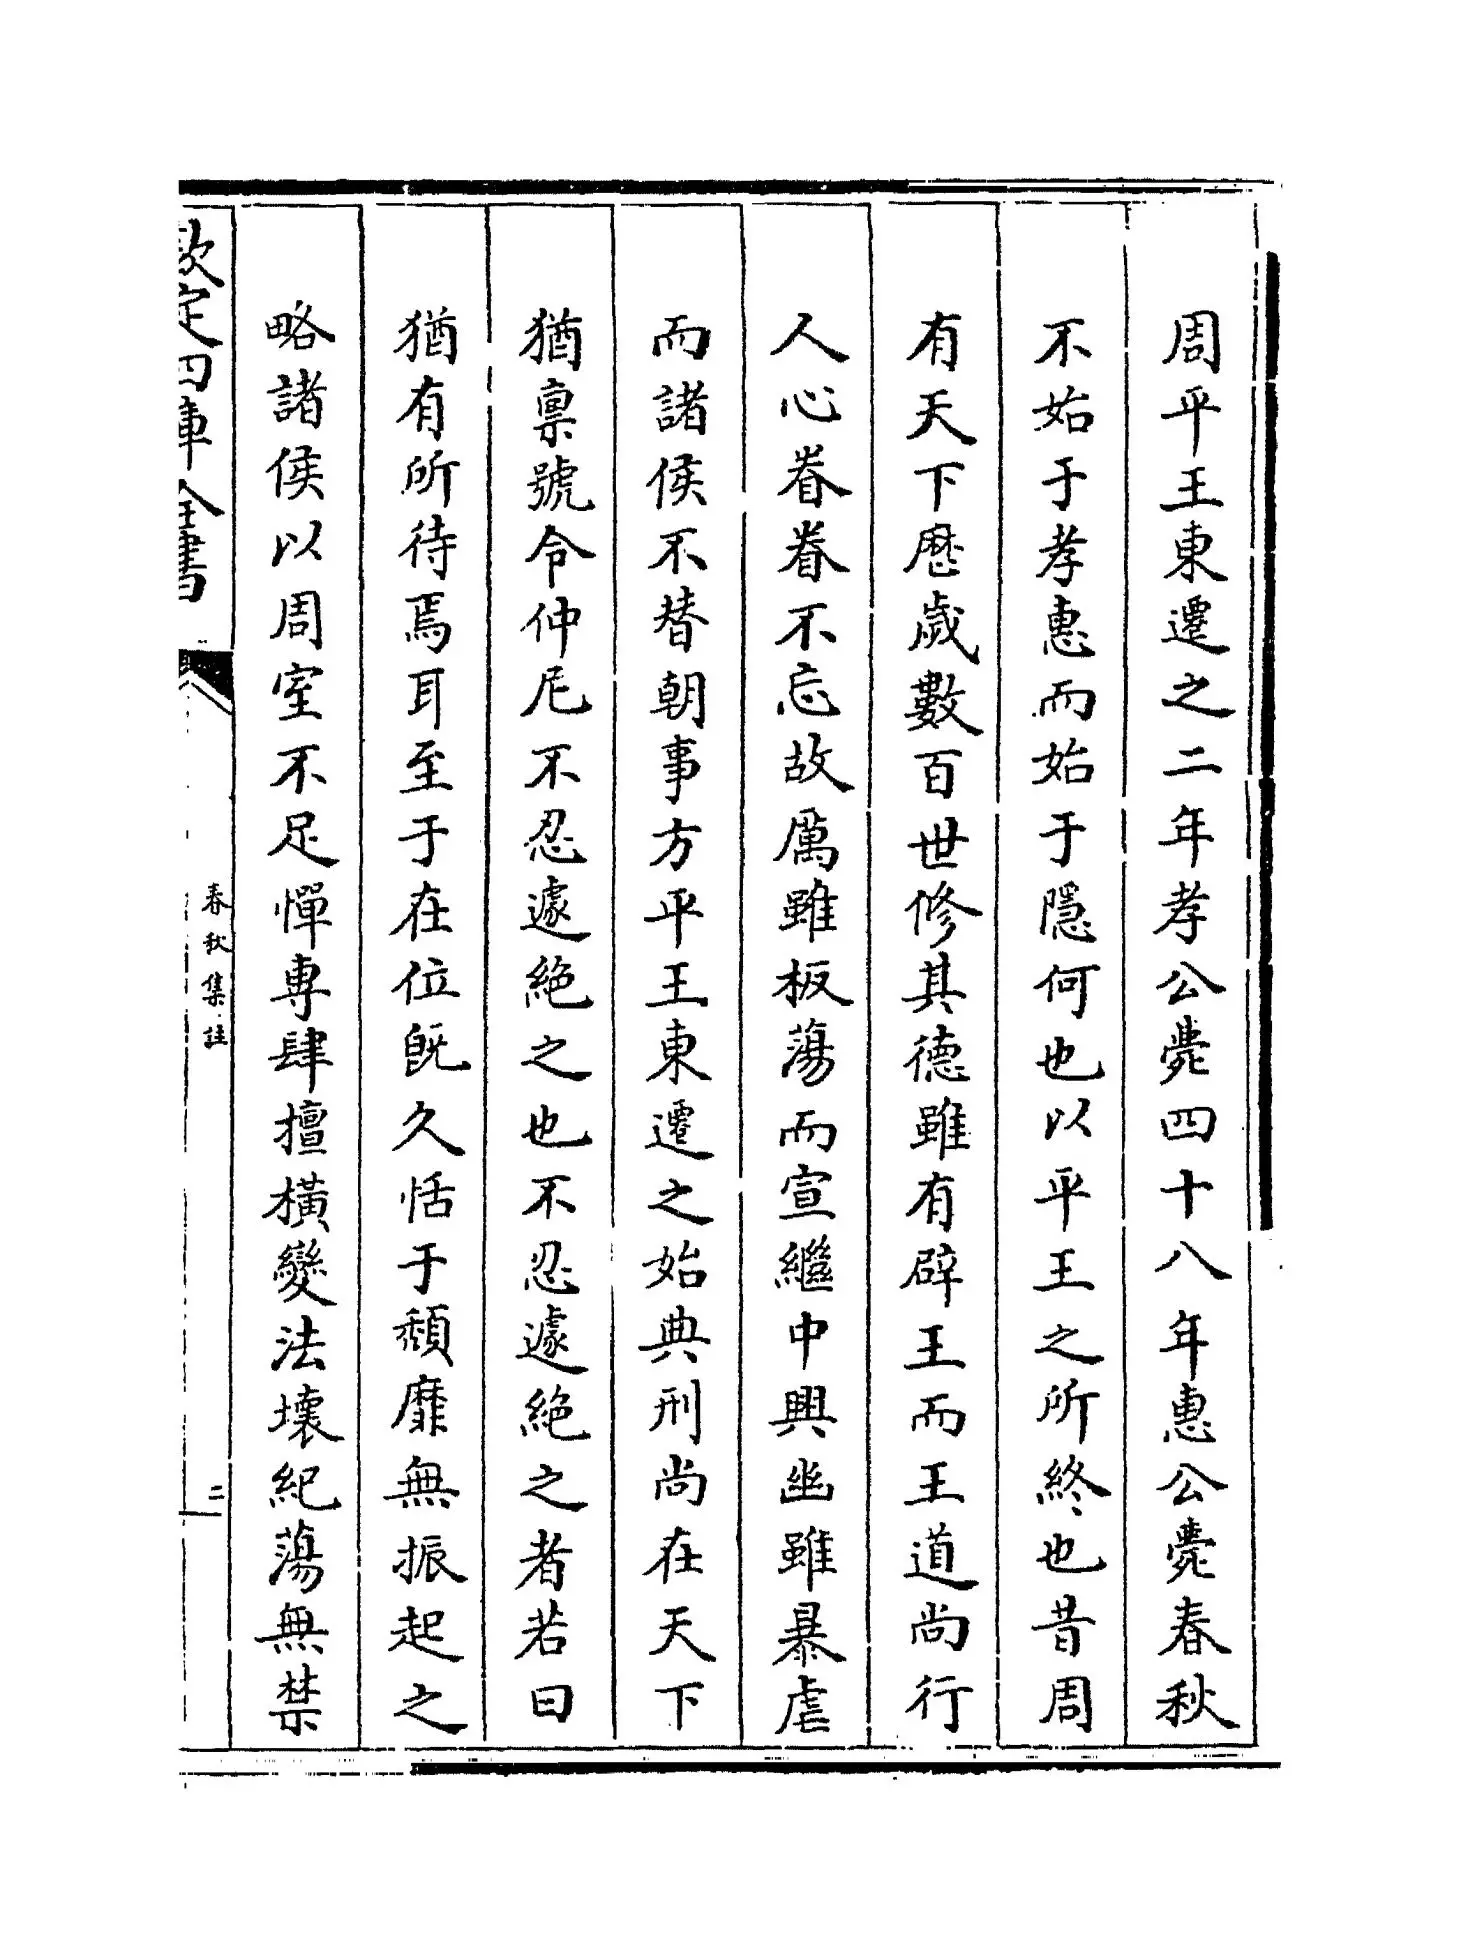 周平王東遷之二年孝公薨四十八年惠公薨春秋
不始于孝惠而始于隱何也以平王之所終也昔周
有天下歷歲數百世修其德雖有辟王而王道尚行
人心眷眷不忘故厲雖板蕩而宣繼中興幽雖暴虐
而諸侯不替朝事方平王東遷之始典刑尚在天下
猶禀號令仲尼不忍遽絶之也不忍遽絶之者若曰
猶有所待焉耳至于在位既久恬于頽靡無振起之
略諸侯以周室不足憚專肆擅橫變法壞紀蕩無禁
欽定四庫全書
春秋集註
二